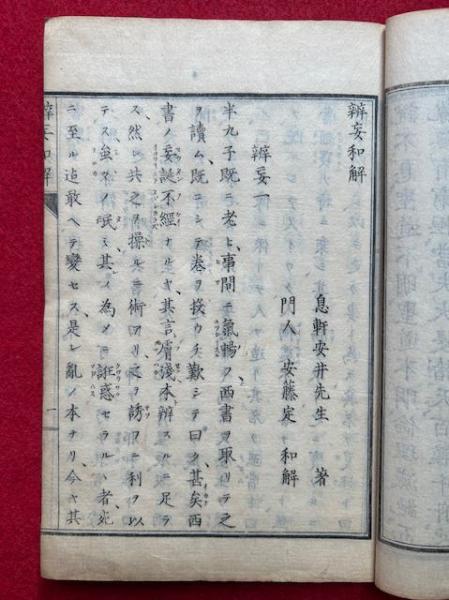 辨妄和解
息軒安井先生 著
門人 安藤定 和解
辨妄一
半九子既ニ老ヒ、事閒ニ氣暢フ西書ヲ取リテ之
ヲ讀ム、既ニシテ巻ヲ投ウチ歎シテ曰ク、甚矣西
書ノ妄誕不經ナルヤ、其言膚淺本辨スルニ足ラ
ス、然レ共之ヲ操ルニ術アリ、之ヲ誘フニ利ヲ以
テス、蚩スノ民、其イ為メニ誑惑セラルヽ者、死
ニ至ル迠敢ヘテ變セス、是レ亂ノ本ナリ、今ヤ其
辨妄和解
一